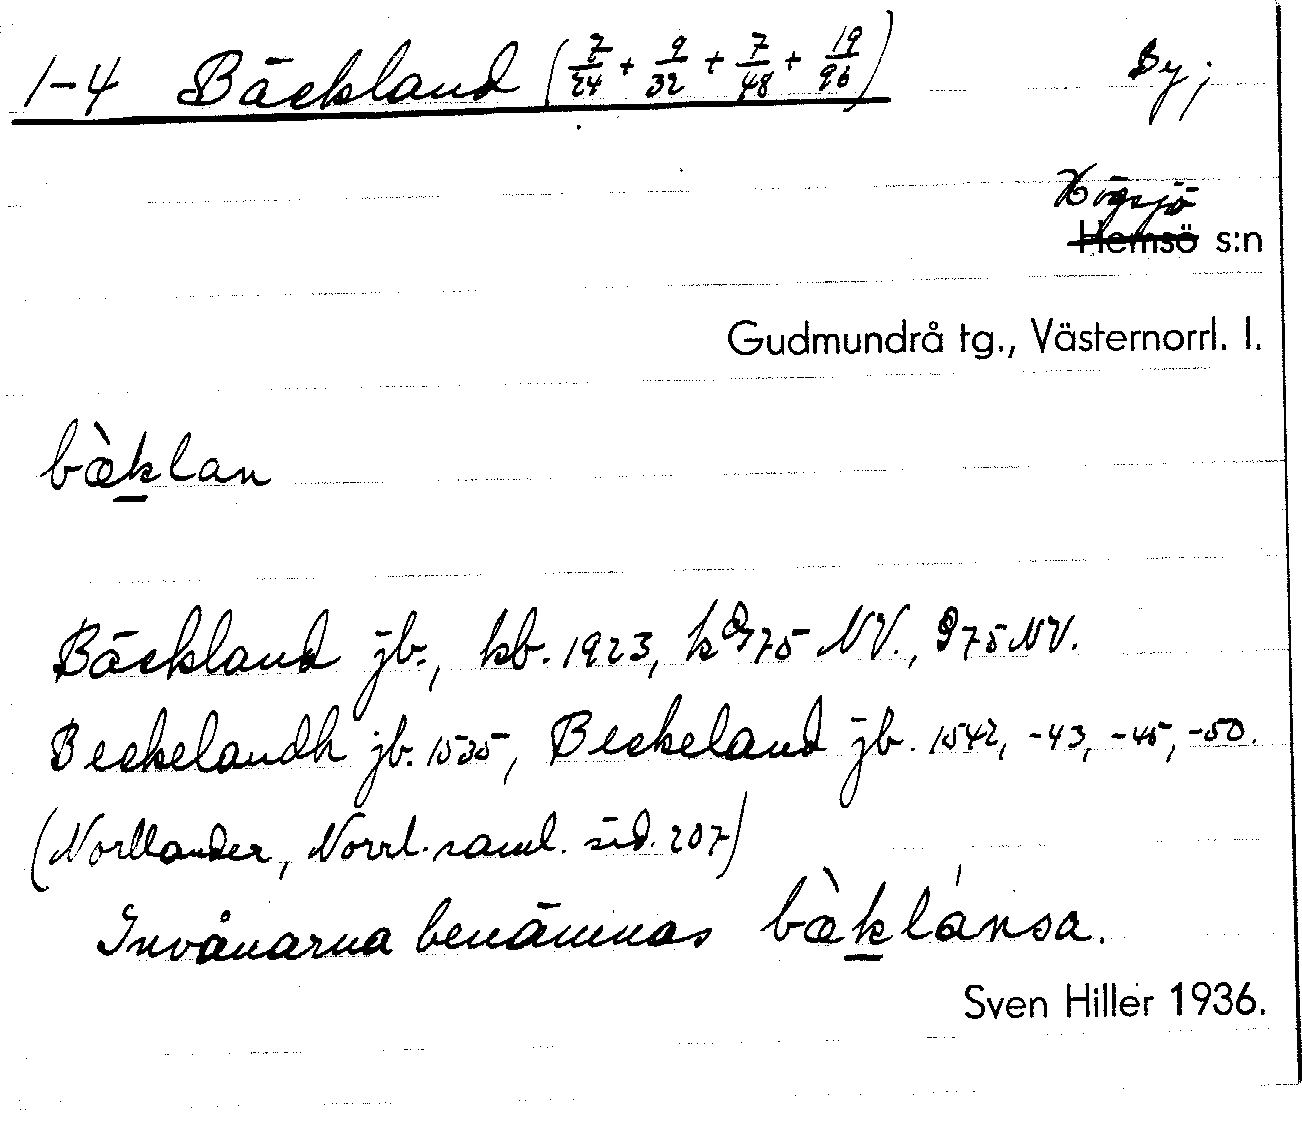 1-4 Bäckland (7/24 + 9/32 + 7/48 + 19/96) By;
Högsjö
Hemsö s:n
Gudmundrå tg., Västernorrl. l.
bæ̀klan
Bäckland jb., kb. 1923, k 975 NV., 975 NV.
Beckelandh jb. 1535, Beckeland jb. 1542, -43, -45, -50.
(Nordlander, Norrl. saml. sid. 207)
Invånarna benämnas bæ̀klánsa.
Sven Hiller 1936.